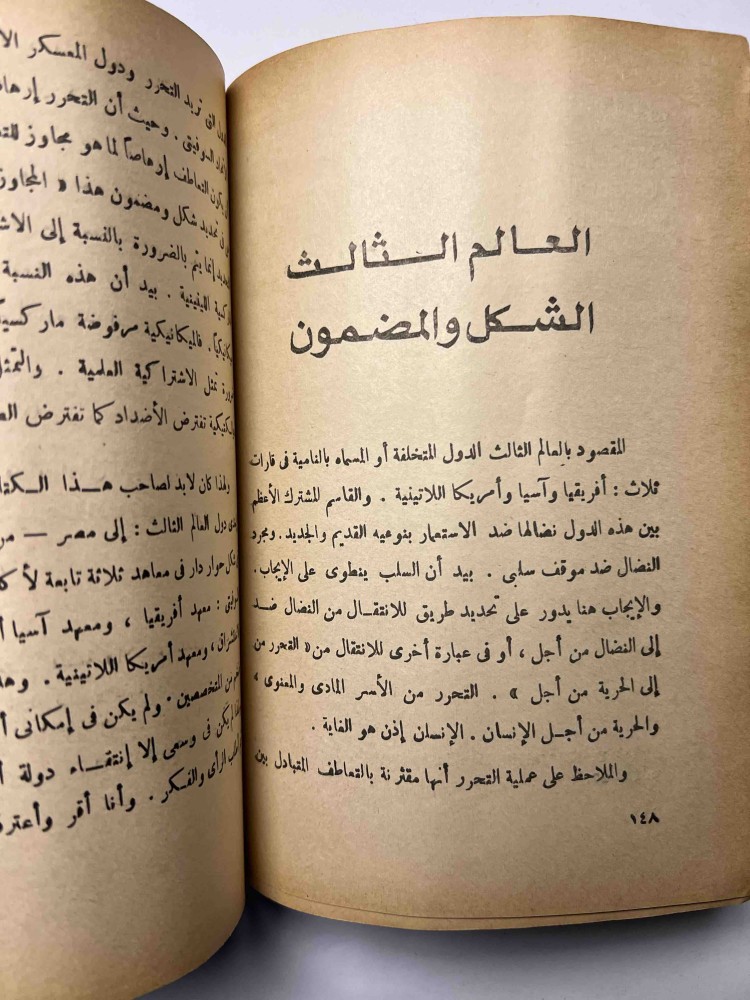 العالم الثالث
الشكل والمضمون
المقصود بالعالم الثالث الدول المتخلفة أو المسماه بالنامية فى قارات
ثلاث : أفريقيا وآسيا وأمريكا اللاتينية . والقاسم المشترك الأعظم
بين هذه الدول نضالها ضد الاستعمار بنوعيه القديم والجديد . ومجرد
النضال ضد موقف سلبى . بيد أن السلب ينطوى على الإيجاب .
والإيجاب هنا يدور على تحديد طريق للانتقال من النضال ضد
إلى النضال من أجل ، أو فى عبارة أخرى للانتقال من « التحرر من
إلى الحرية من أجل » . التحرر من الأسر المادى والمعنوى »
والحرية من أجل الإنسان . الإنسان إذن هو الغاية .
والملاحظ على عملية التحرر أنها مقترنة بالتعاطف المتبادل بين
١٤٨
التى تريد التحرر ودول المعسكر
السوفيتى . وحيث أن التحرر
يكون التعاطف إرهاصاً لما هو مجاوز
فى تحديد شكل ومضمون هذا « المجاوز
إنما يتم بالضرورة بالنسبة إلى
اللينينية . بيد أن هذه النسبة
. فالميكانيكية مرفوضة
تمثل الاشتراكية العلمية .
تفترض الأضداد كما تفترض
ولهذا كان لابد لصاحب هذا
دول العالم الثالث : إلى مصر —
شكل حوار دار فى معاهد ثلاثة تابعة
: معهد أفريقيا ، ومعهد آسيا
، ومعهد أمريكا اللاتينية .
من المتخصصين . ولم يكن فى إمكانى
يكن فى وسعى إلا إنتقاء دولة
الرأى والفكر . وأنا أقر